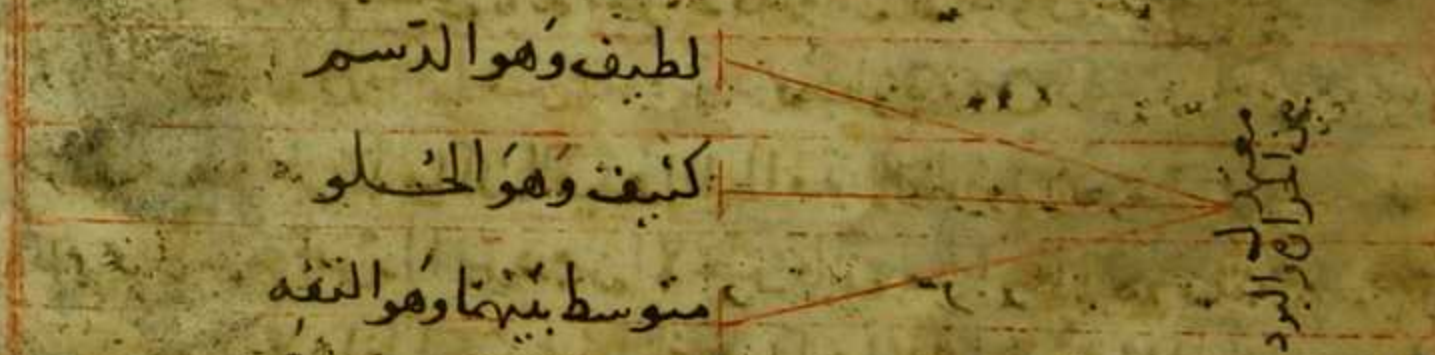 معتدل
بين الحرارة والبرد
لطيف وهو الدسم
كثيف وهو الحلو
متوسط بينهما وهو التفه